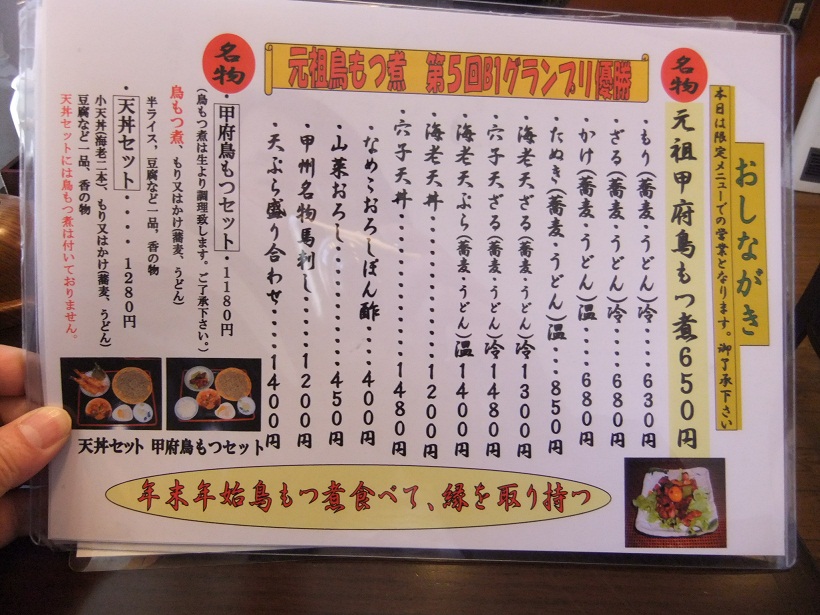 おしながき
本日は限定メニューでの営業となります。御了承下さい
名物
元祖甲府鳥もつ煮650円
元祖鳥もつ煮 第5回B1グランプリ優勝
・もり(蕎麦・うどん)冷・・・・630円
ざる(蕎麦・うどん)冷・・・・680円
・かけ(蕎麦・うどん)温・・・・680円
・たぬき(蕎麦・うどん)温・・・850円
・海老天ざる(蕎麦・うどん)冷1300円
・穴子天ざる(蕎麦・うどん)冷1480円
・海老天ぷら(蕎麦・うどん)温1400円
・海老天丼・・・・・・・・・1200円
・穴子天丼・・・・・・・・・1480円
・なめこおろしぽん酢・・・・400円
・山菜おろし・・・・・・・・450円
・甲州名物馬刺し・・・・・1200円
・天ぷら盛り合わせ・・・・1400円
名物
・甲府鳥もつセット・1180円
(鳥もつ煮は生より調理致します。ご了承下さい。)
鳥もつ煮、もり又はかけ(蕎麦、うどん)
半ライス、豆腐など一品、香の物
・天丼セット・・・・1280円
小天丼(海老二本)、もり又はかけ(蕎麦、うどん)
豆腐など一品、香の物
天丼セットには鳥もつ煮は付いておりません。
天丼セット 甲府鳥もつセット
年末年始鳥もつ煮食べて、縁を取り持つ